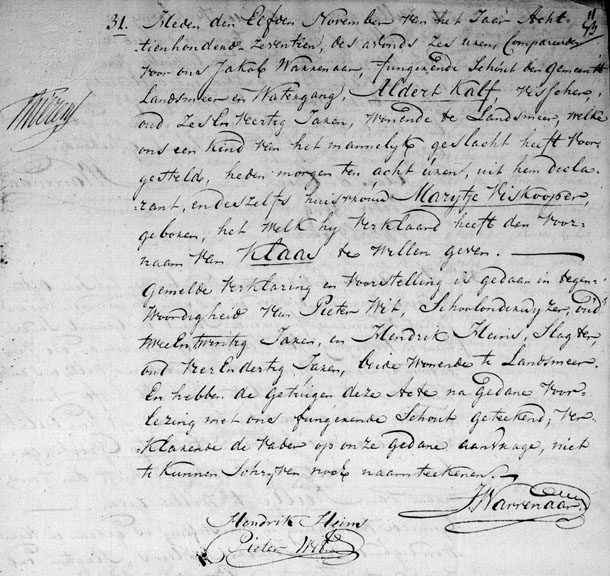 31. Heden den Elfden November van het Jaar Acht-
tienhonderd Zeventien, des avonds zes uren, Compareerde
voor ons Jakob Warrenaar, fungerende Schout der Gemeente
Landsmeer en Watergang, Aldert Kalf visscher,
oud zes en veertig Jaren, wonende te Landsmeer, welke
ons een kind van het mannelyk geslacht heeft voor-
gesteld, heden morgen ten acht uren, uit hem decla-
rant, en deszelfs huisvrouw Marytje Viskooper,
geboren, het welk hy verklaard heeft den voor-
naam van Klaas te willen geven.
Gemelde verklaring en voorstelling is gedaan in tegen-
woordigheid van Pieter Wit, Schoolonderwyzer, oud
twee en twintig Jaren, en Hendrik Heins, Slagter,
oud vier en dertig Jaren, beide wonende te Landsmeer.
En hebben de getuigen deze Acte na gedane voor-
lezing met ons fungerende Schout getekend, ver-
klarende de vader op onze gedane aanvrage, niet
te kunnen schryven noch naamteekenen.
JWarrenaar
Hendrik Heins
Pieter Wit